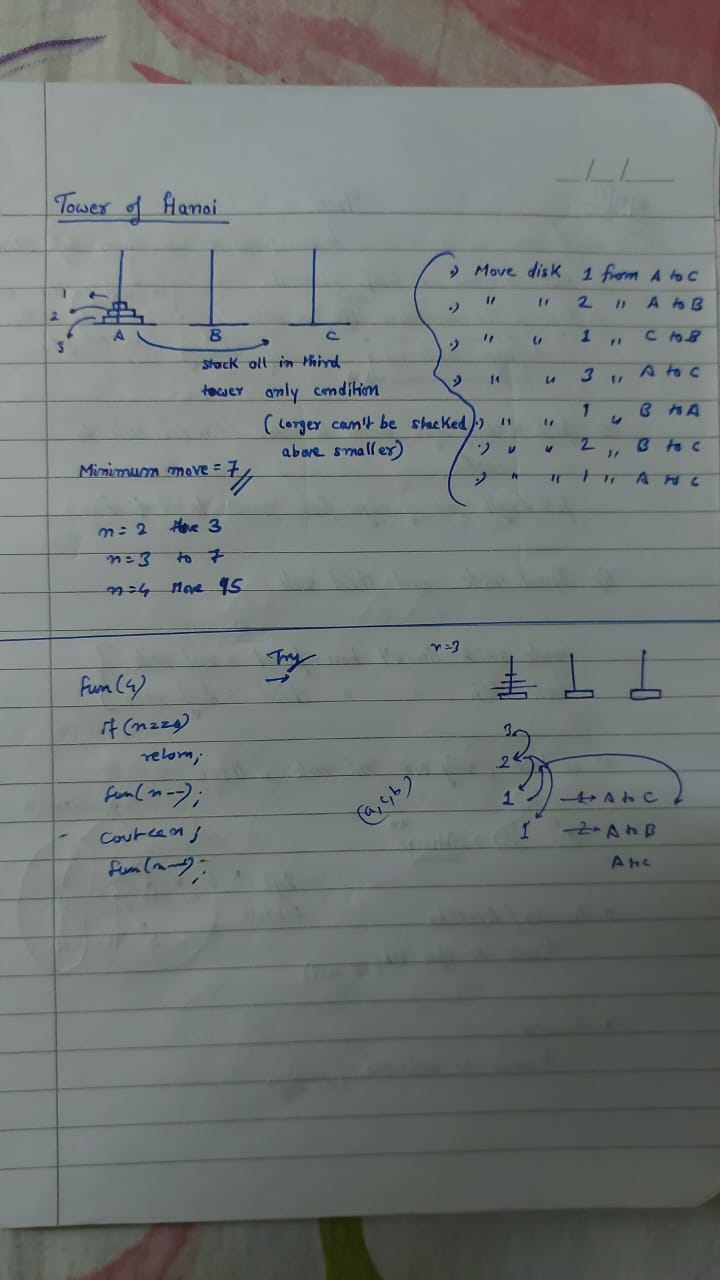 Tower of Hanoi
1
2
3
A B C
stack all in third
tower only condition
(Larger can't be stacked
above smaller)
Minimum move = 7
n = 2 3
n = 3 to 7
n = 4 Move 15
.) Move disk 1 from A to C
.) " " 2 " A to B
.) " " 1 " C to B
.) " " 3 " A to C
.) " " 1 " B to A
.) " " 2 " B to C
.) " " 1 " A to C
Try
n=3
fun(4)
return;
fun(n--);
cout<<n;
fun(n--);
(a,c,b)
3
2
1 A to C
1 A to B
A to C